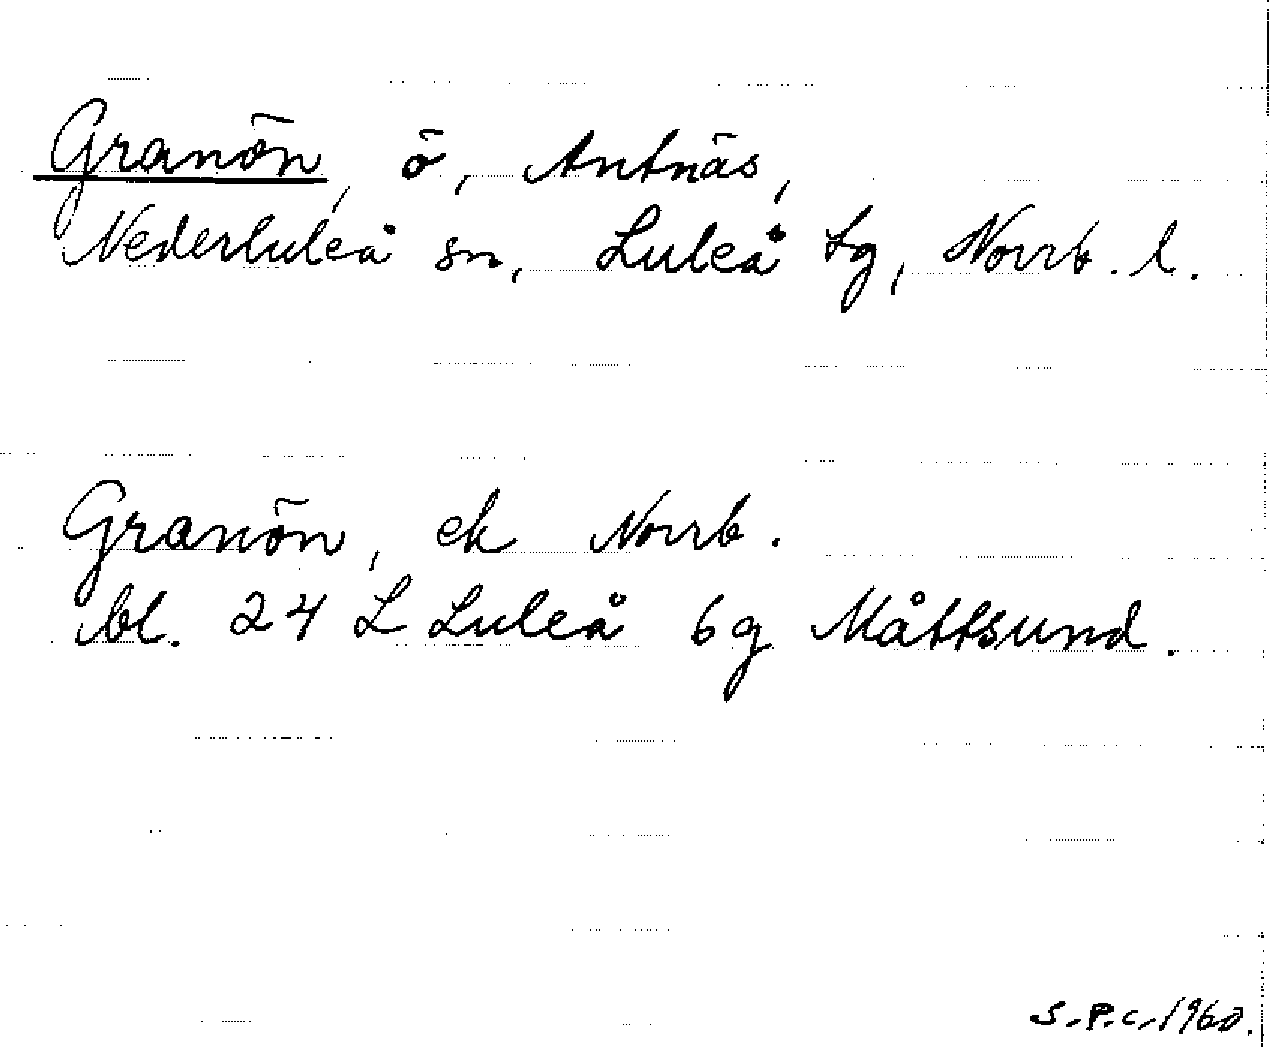 Granön, ö, Antnäs,
Nederluleå sn, Luleå tg, Norrb. l.
Granön, ek Norrb.
bl. 24 L Luleå 6g Måttsund.
S.P.C. 1960.